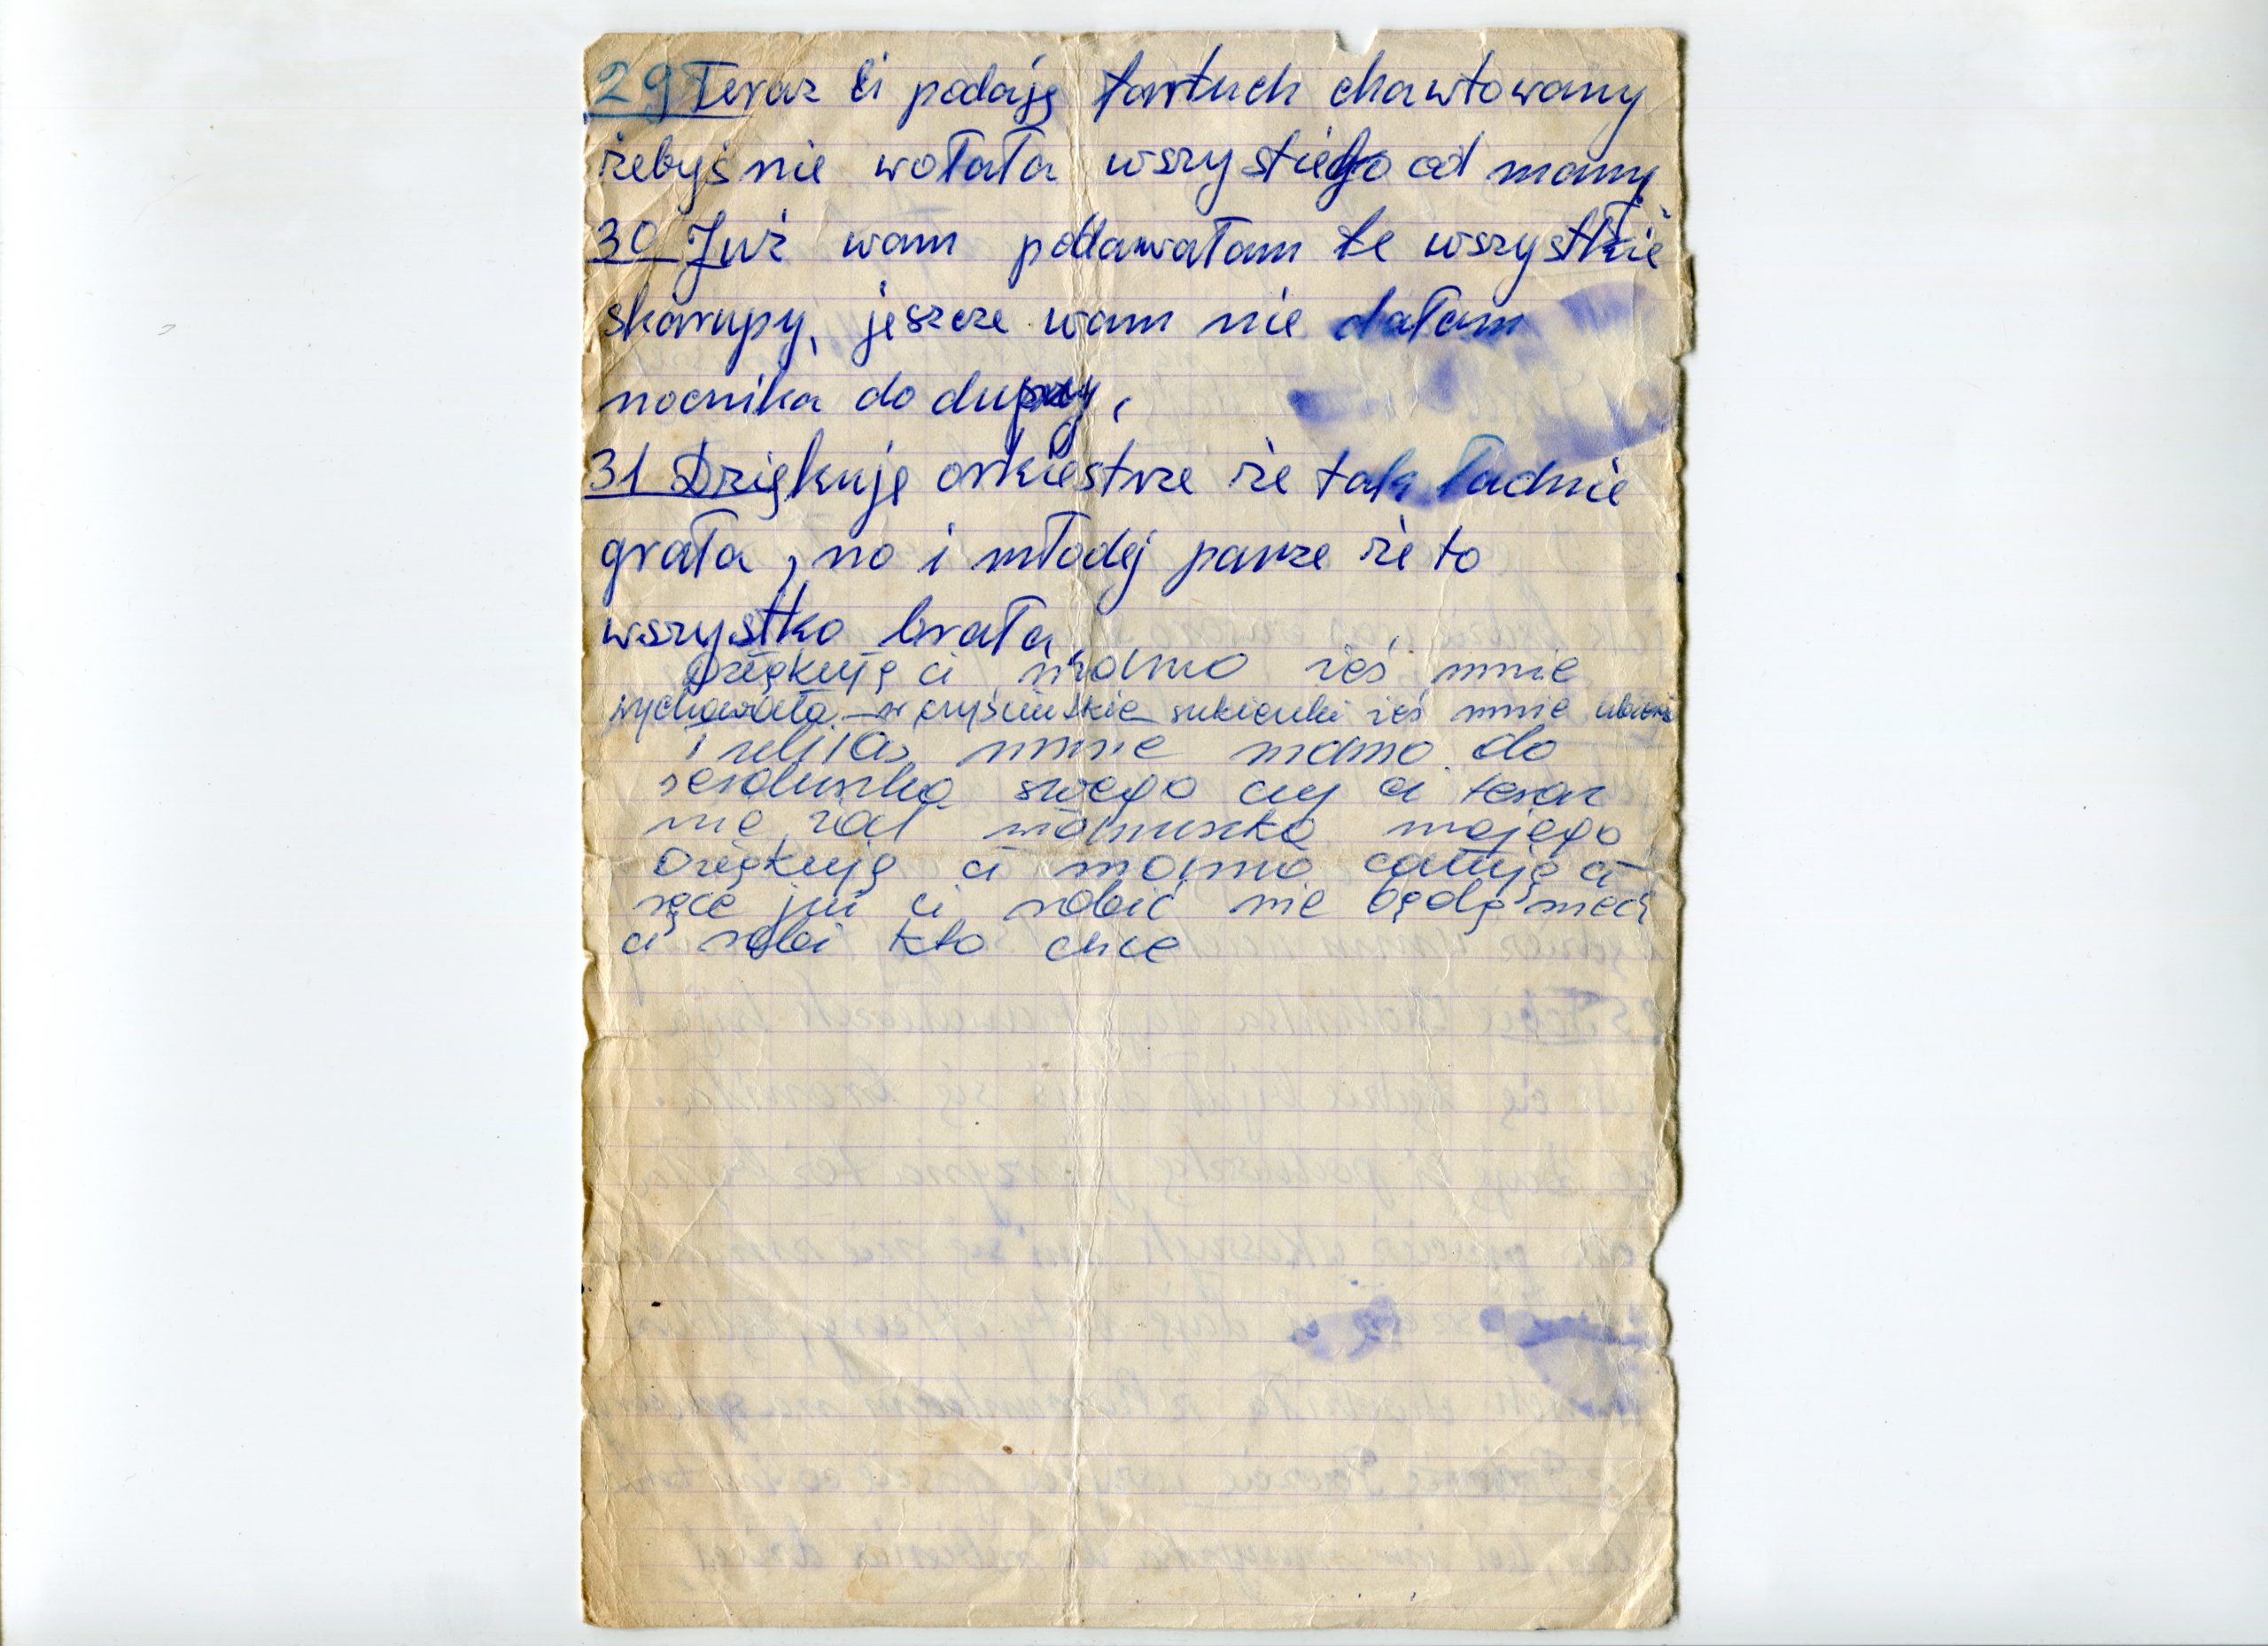 29 Teraz Ci podaję fartuch chawtowany
żebyś nie wołała wszystiego od mamy
30 Już wam podawałam te wszystkie
skarupy, jeszcze wam nie dałam
nocnika do dupy,
31 Dziękuję orkiestrze że tak ładnie
grała, no i młodej parze że to
wszystko brała
Dziękuję ci mamo żeś mnie
wychowała w sukienki żeś mnie
i mnie mamo do
serduszka swego czy ci teraz
nie żal mamusko mojego
Dziękuję ci mamo całuję ci
ręce już ci robić nie będę niech
ci robi kto chce